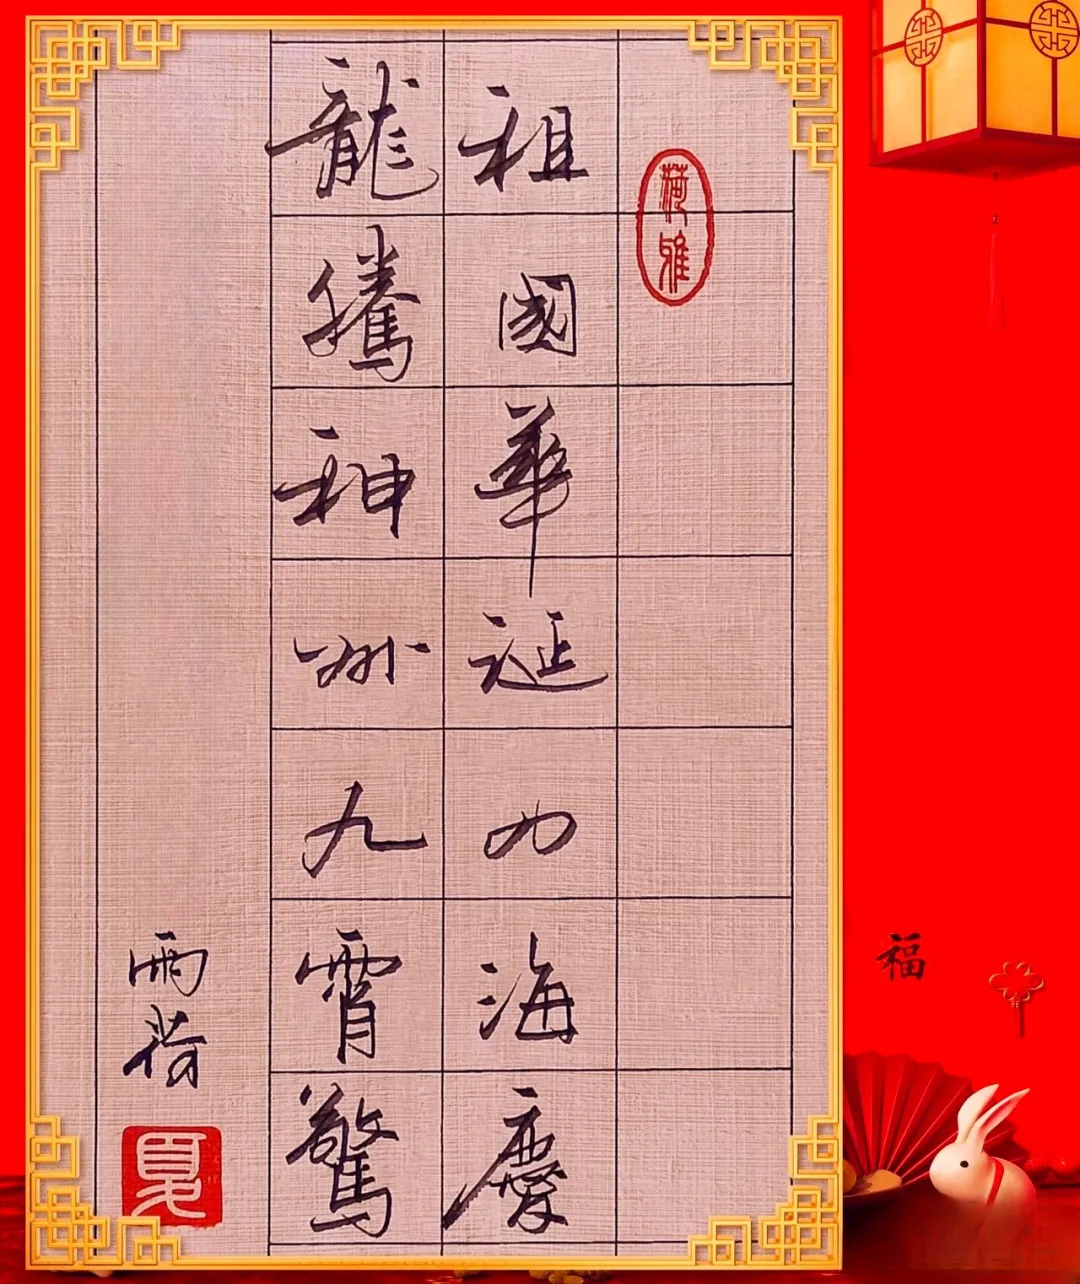 祖國華誕四海慶
龍騰神州九霄驚
雨荷
荷雅
夏
福